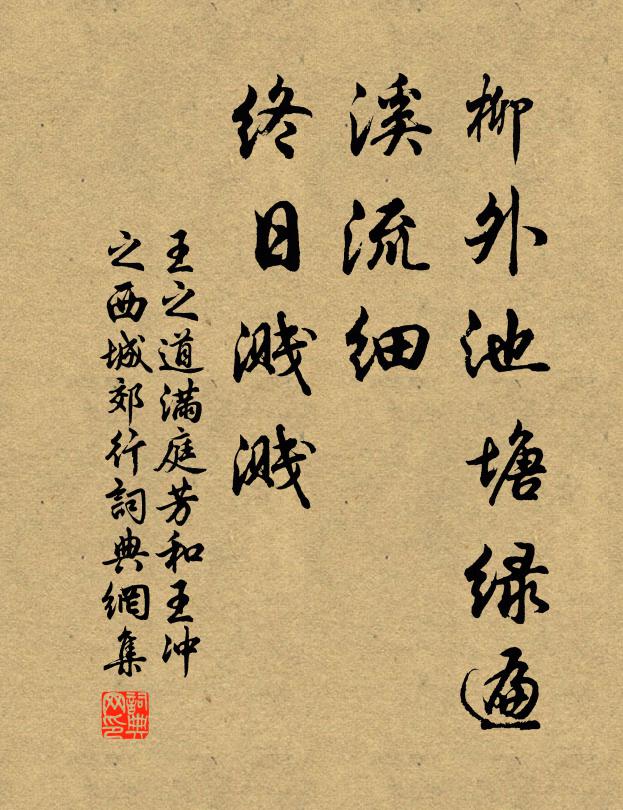 柳外池塘绿遍
溪流细
终日溅溅
王之道满庭芳和王冲
之西城郊行詞典網集
詞典网印